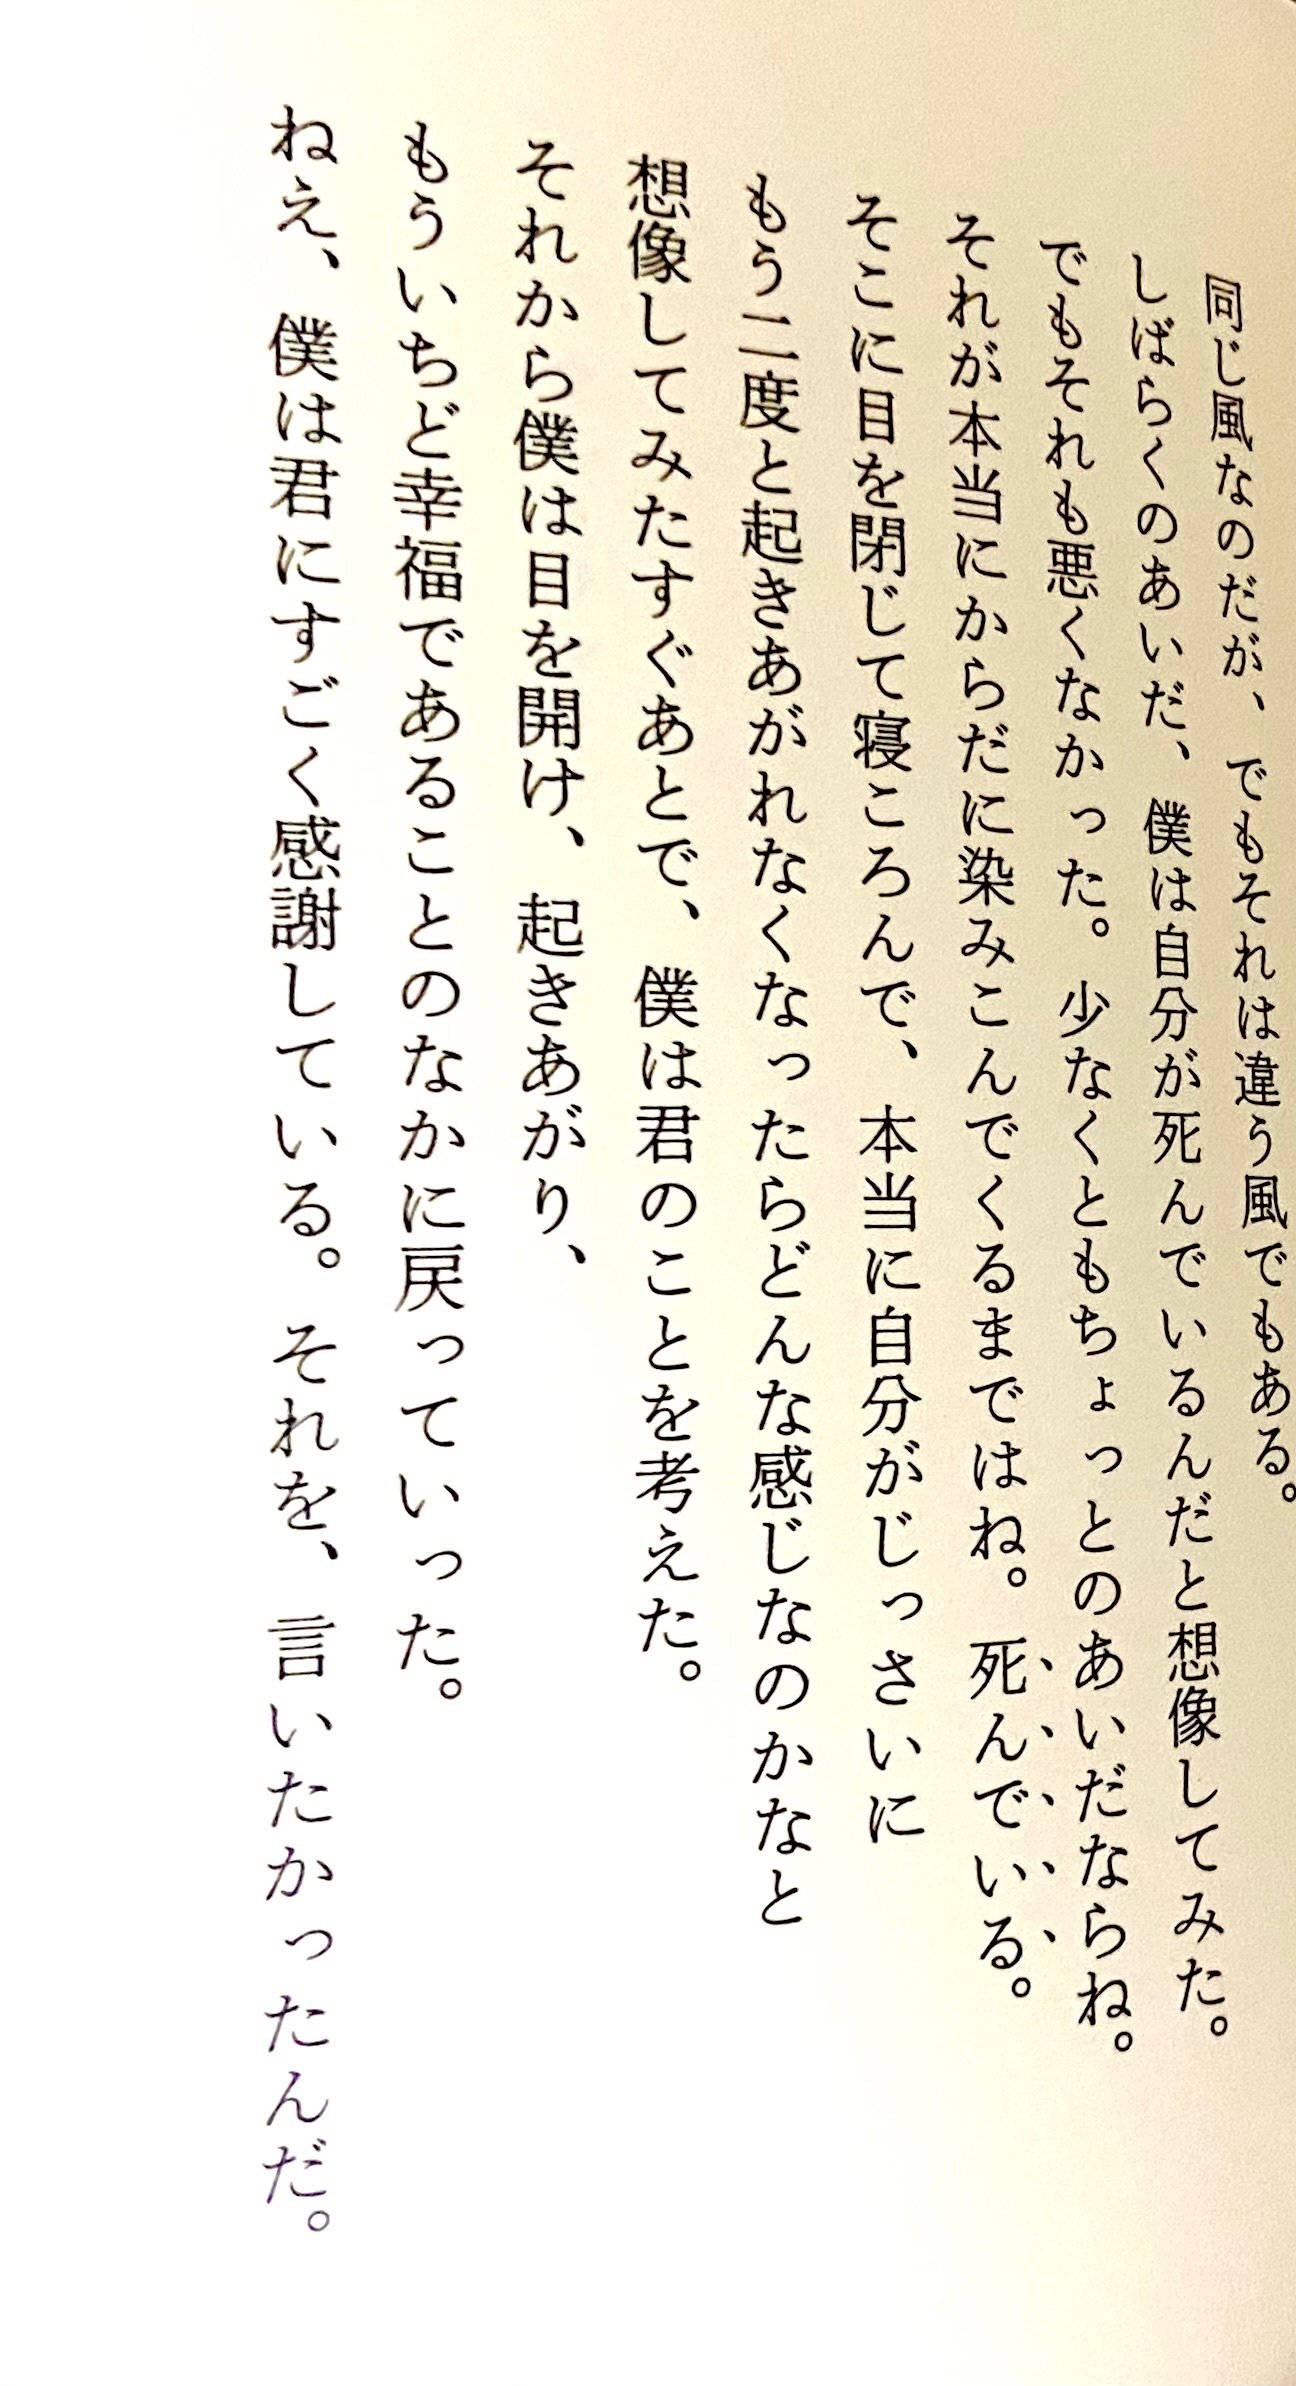 同じ風なのだが、でもそれは違う風でもある。
しばらくのあいだ、僕は自分が死んでいるんだと想像してみた。
でもそれも悪くなかった。少なくともちょっとのあいだならね。
それが本当にからだに染みこんでくるまではね。死んでいる。
そこに目を閉じて寝ころんで、本当に自分がじっさいに
もう二度と起きあがれなくなったらどんな感じなのかなと
想像してみたすぐあとで、僕は君のことを考えた。
それから僕は目を開け、起きあがり、
もういちど幸福であることのなかに戻っていった。
ねえ、僕は君にすごく感謝している。それを、言いたかったんだ。